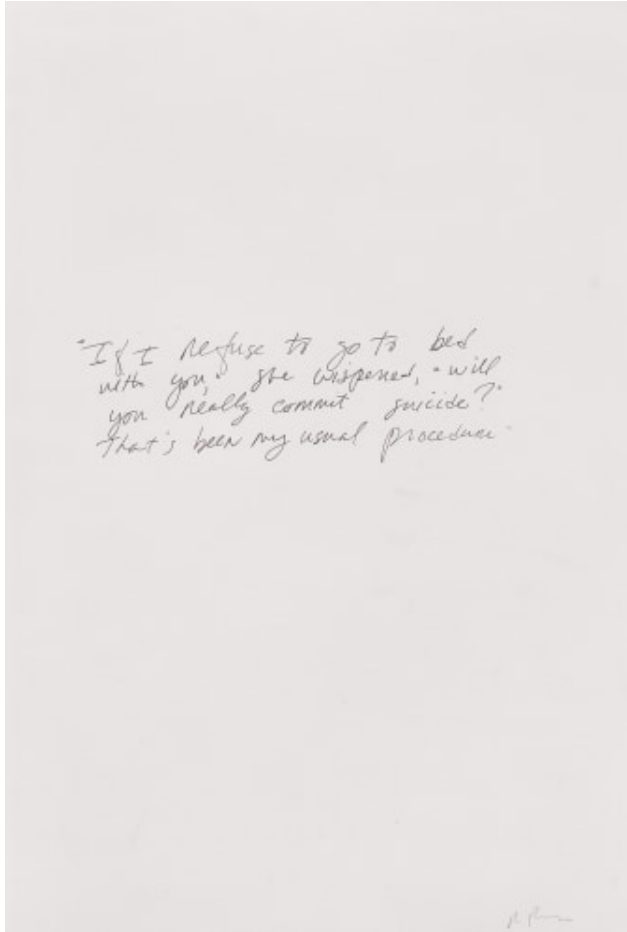 "If I refuse to go to bed
with you," she wispered, "will
you really commit suicide?"
"That's been my usual procedure"